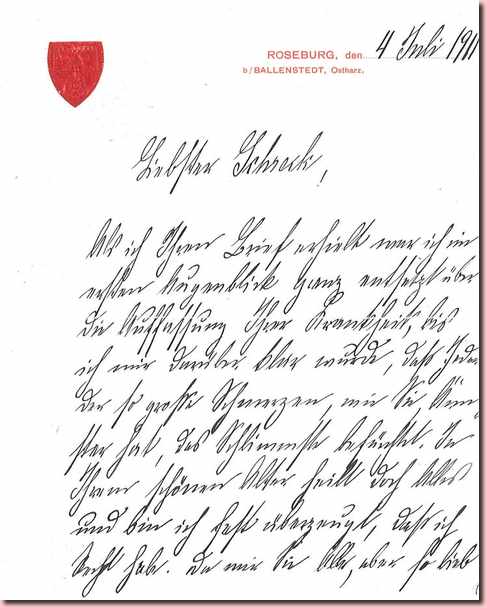 ROSEBURG, den 4 Juli 1911
b/BALLENSTEDT, Ostharz.
Liebster Schreck,
Als ich Ihren Brief erhielt war ich im
ersten Augenblick ganz entsetzt über
die Auffassung Ihrer Krankheit, bis
ich mir darüber klar wurde, dass Jeder
der so große Schmerzen, wie Sie
hat, das Schlimmste befürchtet. In
Ihrem schönen Alter heilt doch Alles
und bin ich fest überzeugt, dass ich
Recht habe. Da mir Sie aber so lieb